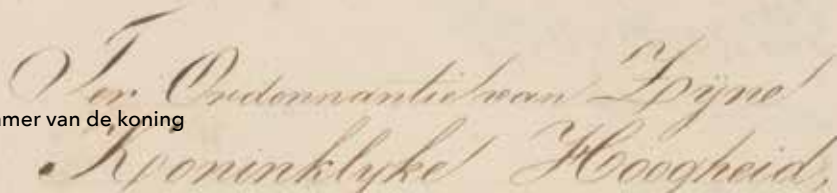 Ter Ordonnantie van Zijne
mer van de koning
Koninklyke Hoogheid,